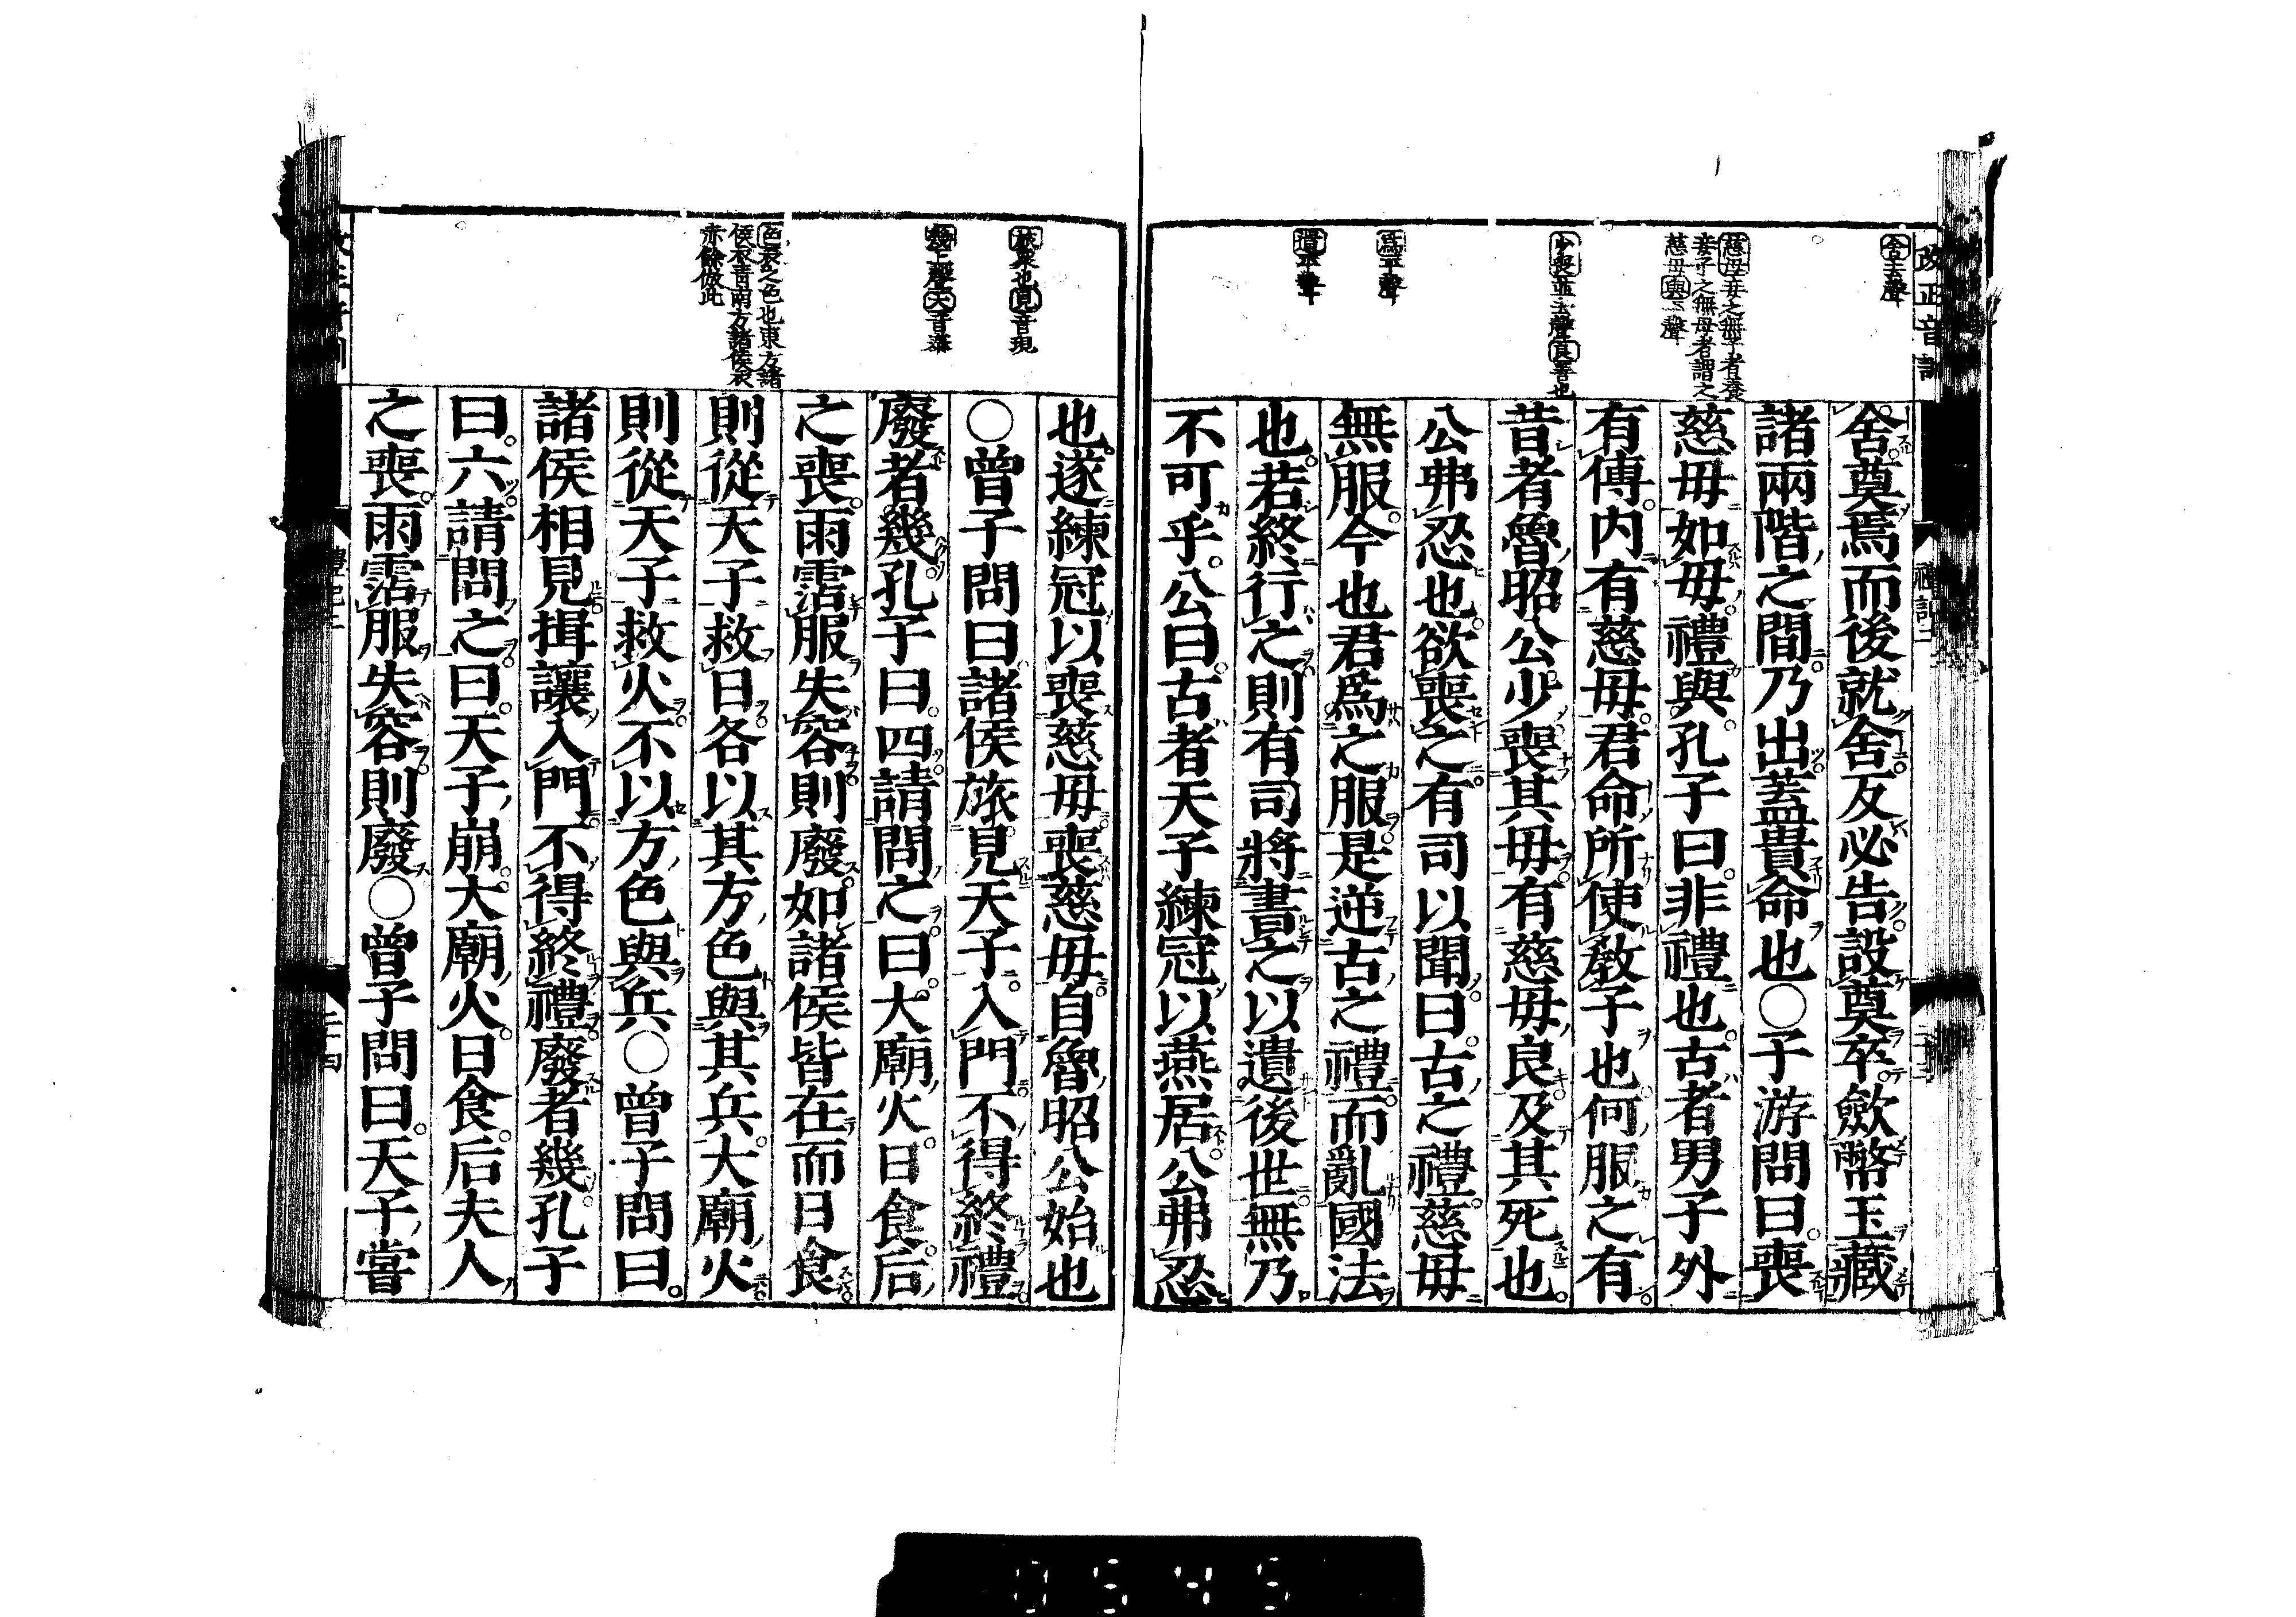 改正音訓
禮記二
舍去聲
慈母妾之無子者養
妾子之無母者謂之
慈母與平聲
少喪並去聲良善也
爲平聲
遺平聲
舍奠焉而後就舍反必告設奠卒歛幣玉藏
諸兩階之間乃出蓋貴命也○子游問曰喪
慈母如母禮與孔子曰非禮也古者男子外
有傅内有慈母君命所使敎子也何服之有
昔者魯昭公少喪其母有慈母良及其死也
公弗忍也欲喪之有司以聞曰古之禮慈母
無服今也君爲之服是逆古之禮而亂國法
也若終行之則有司將書之以遺後世無乃
不可乎公曰古者天子練冠以燕居公弗忍
旅衆也見音現
幾上聲大音泰
色衣之色也東方諸
侯衣青南方諸侯衣
赤餘倣此
也遂練冠以喪慈母喪慈母自魯昭公始也
○曾子問曰諸侯旅見天子入門不得終禮
廢者幾孔子曰四請問之曰大廟火日食后
之喪雨霑服失容則廢如諸侯皆在而日食
則從天子救日各以其方色與其兵大廟火
則從天子救火不以方色與兵○曾子問曰
諸侯相見揖讓入門不得終禮廢者幾孔子
曰六請問之曰天子崩大廟火日食后夫人
之喪雨霑服失容則廢○曾子問曰天子嘗
禮記二
二十四
0545